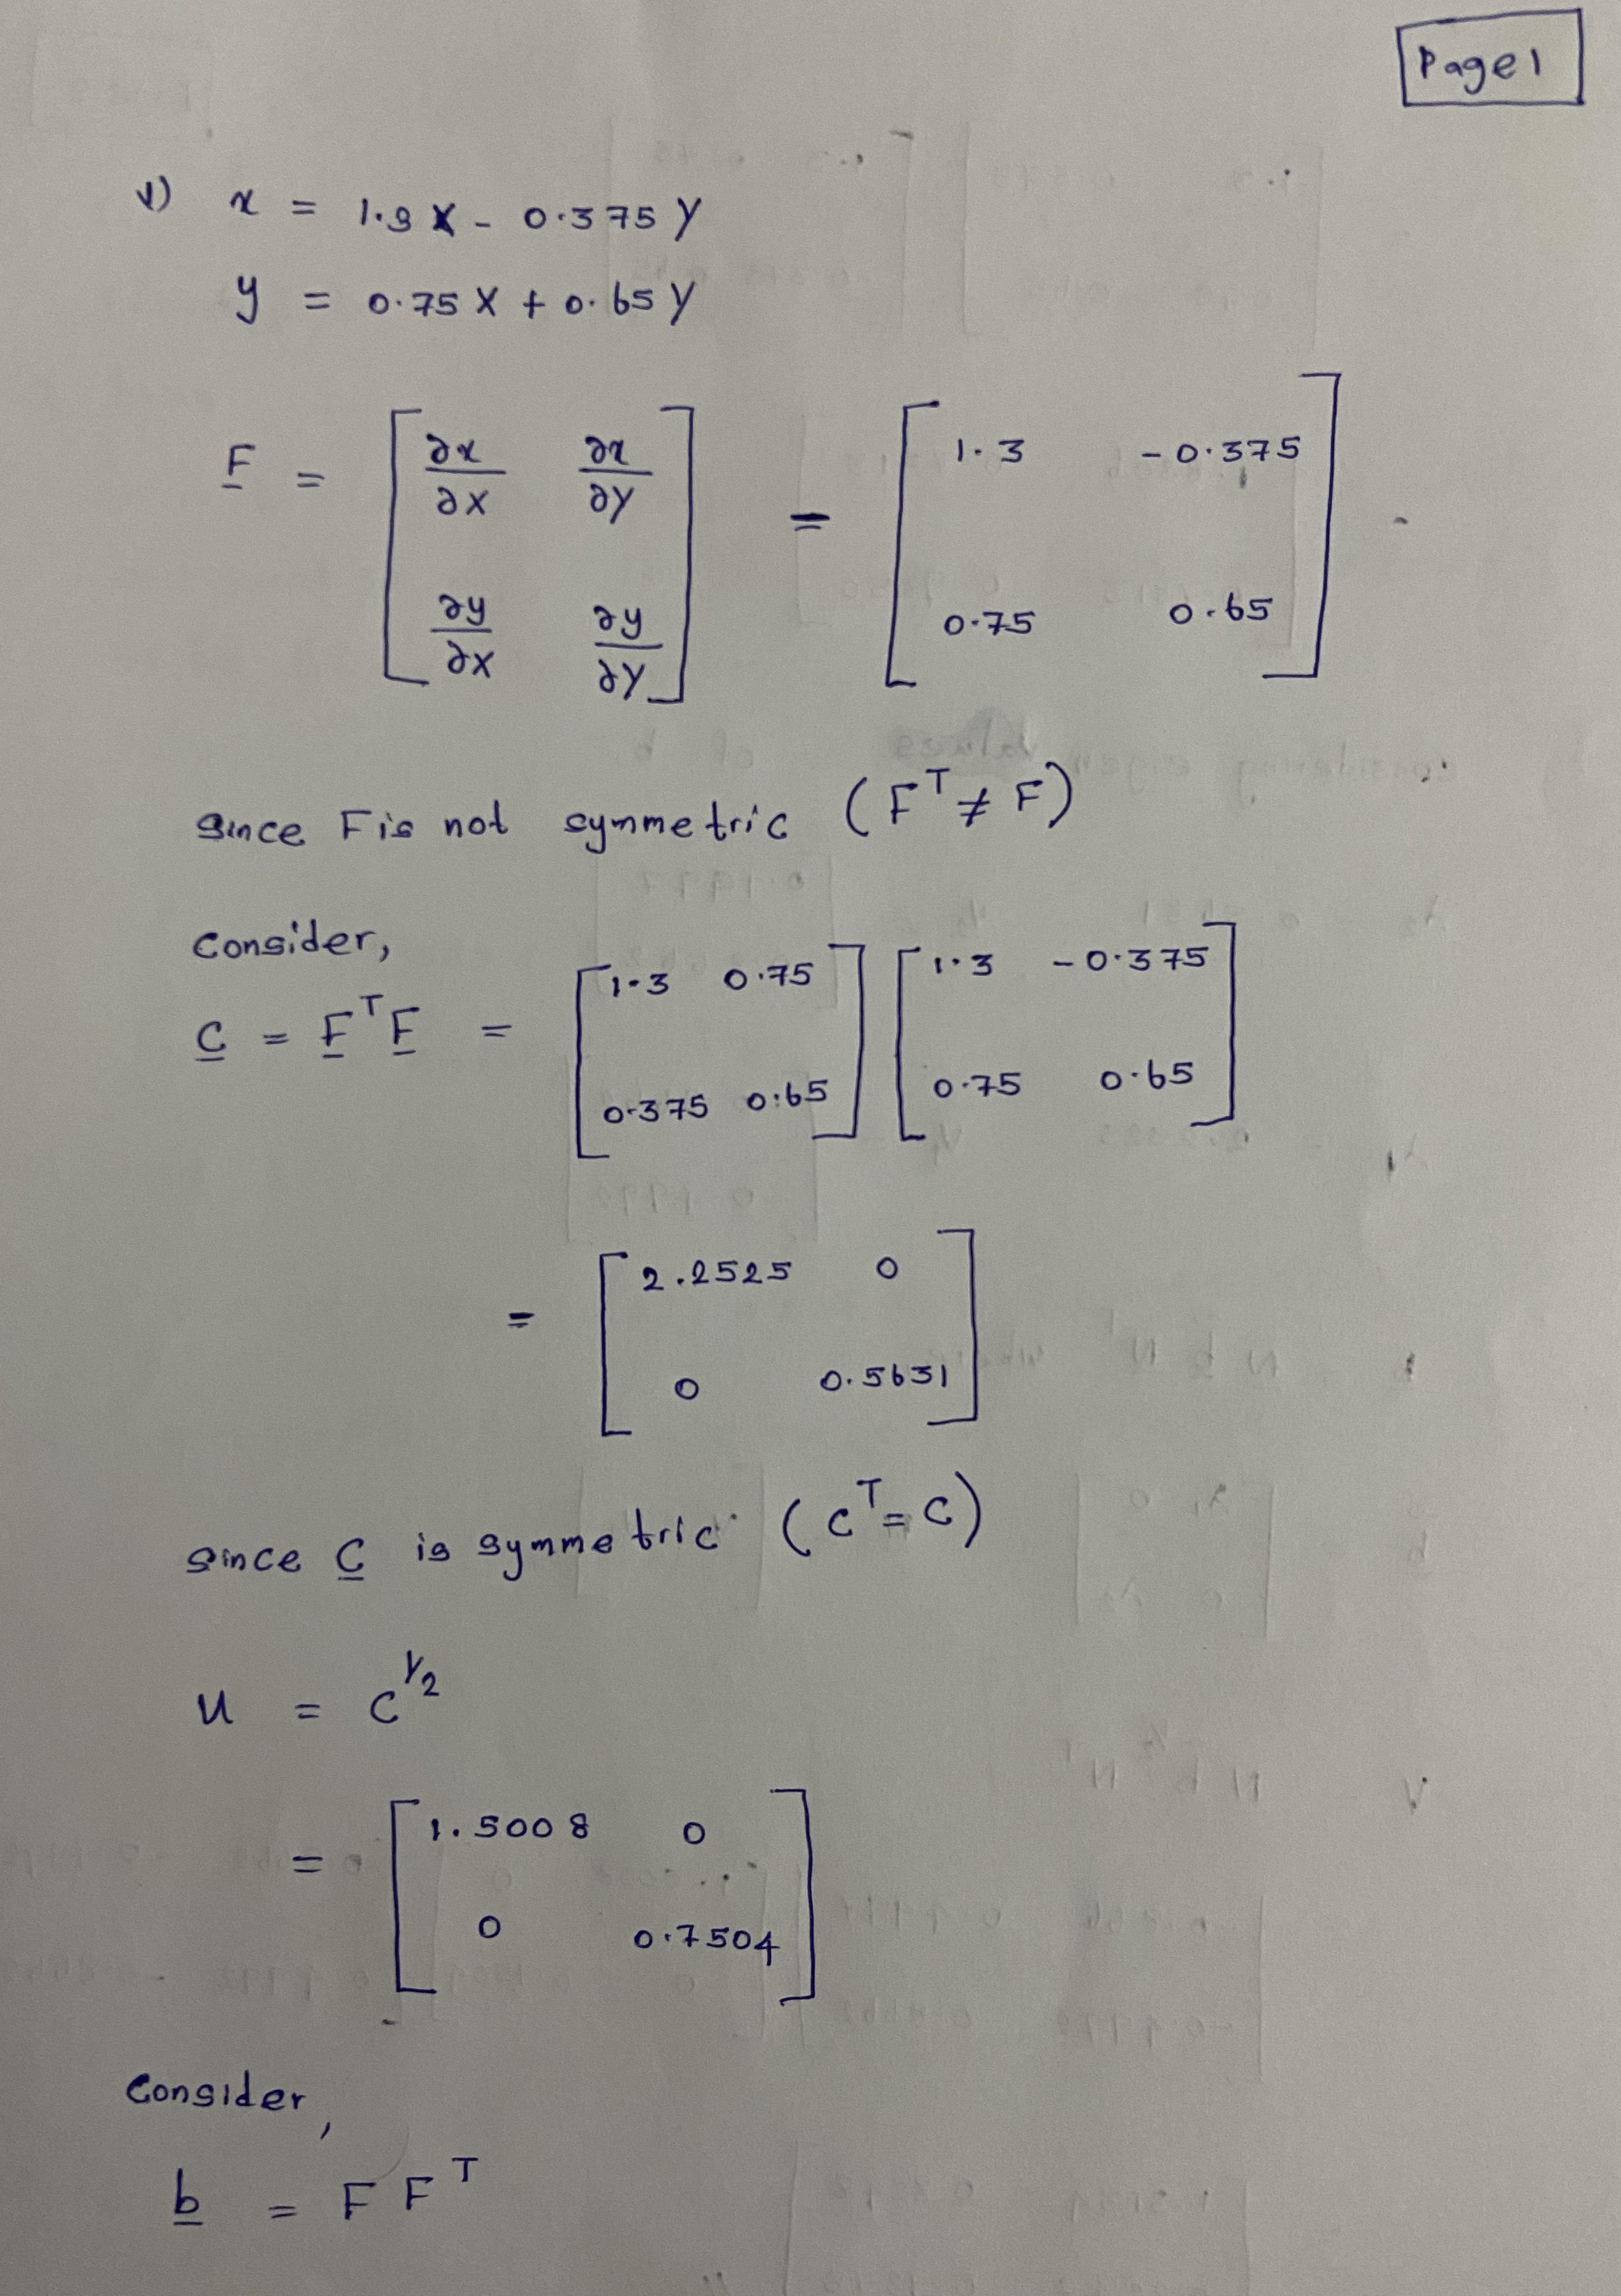 Page 1
1) x = 1.3 X - 0.375 Y
y = 0.75 X + 0.65 Y
F = [ ∂x/∂X ∂x/∂Y ] = [ 1.3 -0.375 ]
[ ∂y/∂X ∂y/∂Y ] [ 0.75 0.65 ]
since F is not symmetric (F^T ≠ F)
consider,
C = F^T F = [ 1.3 0.75 ] [ 1.3 -0.375 ]
[ 0.375 0.65 ] [ 0.75 0.65 ]
= [ 2.2525 0 ]
[ 0 0.5631 ]
since C is symmetric (C^T = C)
U = C^1/2
= [ 1.5008 0 ]
[ 0 0.7504 ]
Consider,
b = F F^T